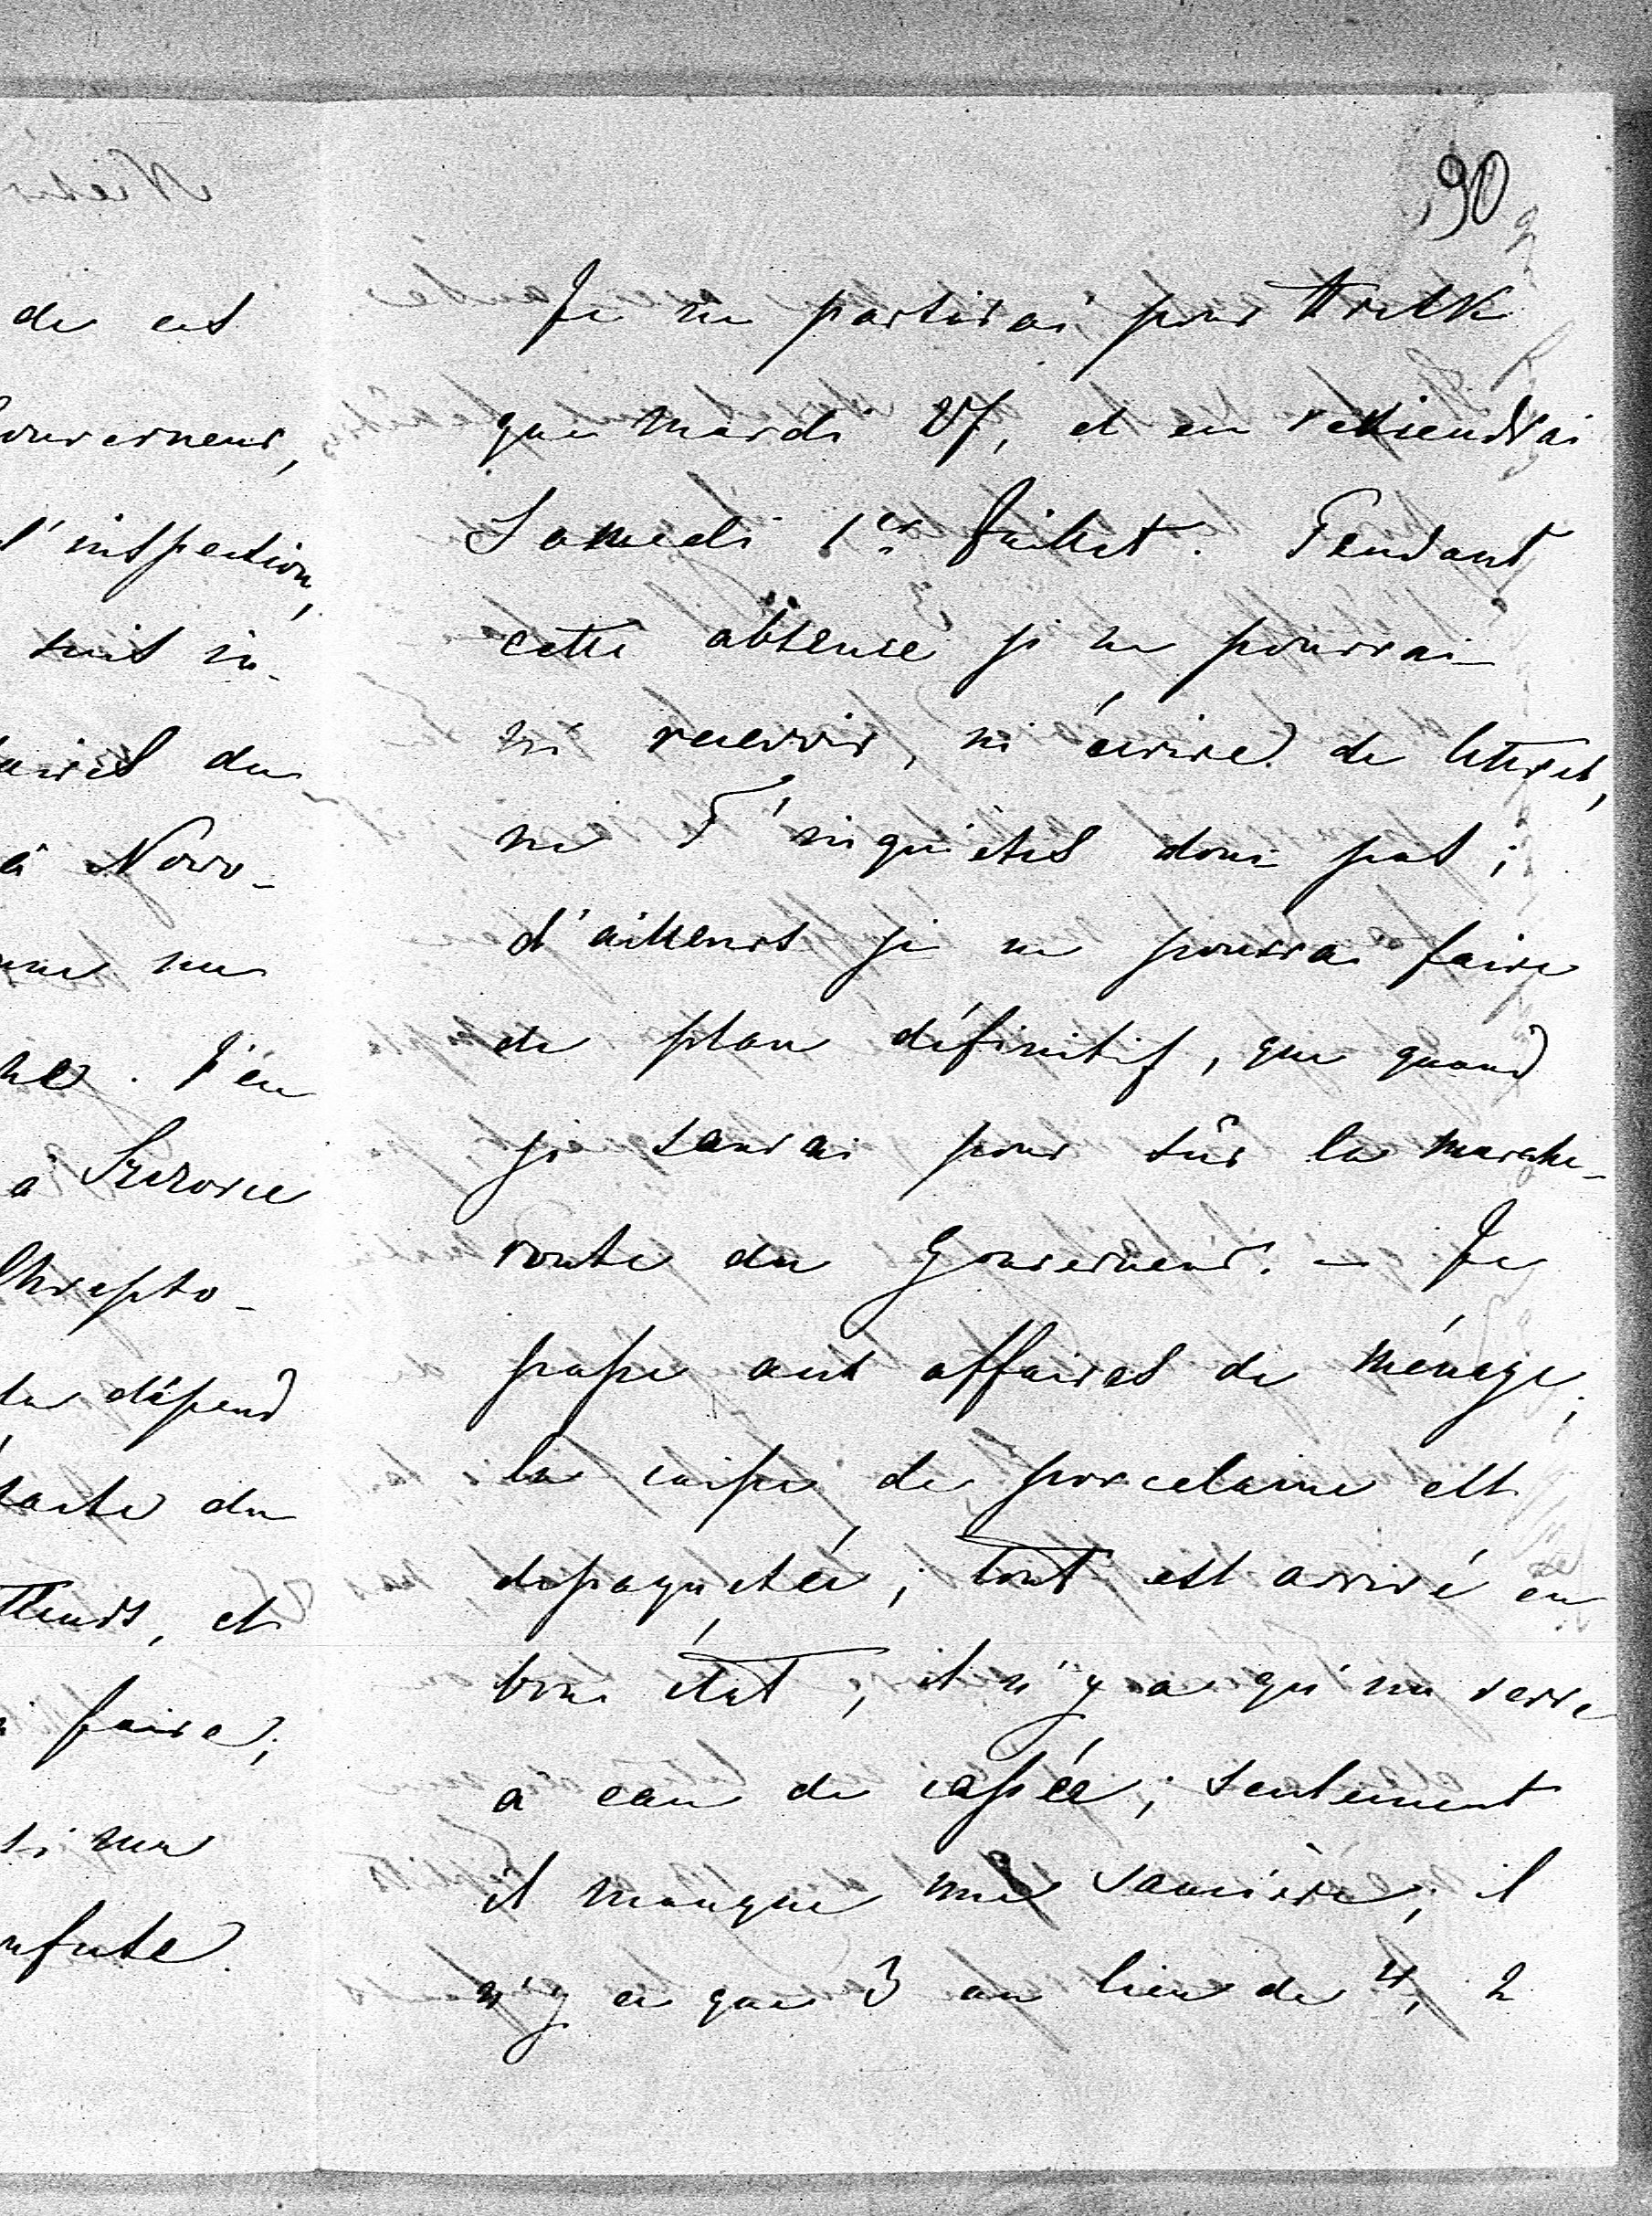 90
de cet
Gouverneur,
d'inspection,
suis in-
aires du
à Nowo-
me
. J'en
à
dépend
du
, et
faire;
Je ne partirai pour
que Mardi 27, et en reviendrai
Samedi 1er Juillet. Pendant
cette absence je ne pourrai
ni recevoir, ni écrire de lettres,
ne t'inquiètes donc pas;
d'ailleurs je ne pourrai faire
de plan définitif, que quand
je saurai pour sûr la marche-
route du Gouverneur. – Je
passe aux affaires de ménage;
la caisse de porcelaine est
dépaquetée; tout est arrivé en
bon état; il n'y a qu'un verre
à eau de cassée; seulement
il manque une saucière; il
n'y a que 3 au lieu de 4, 2